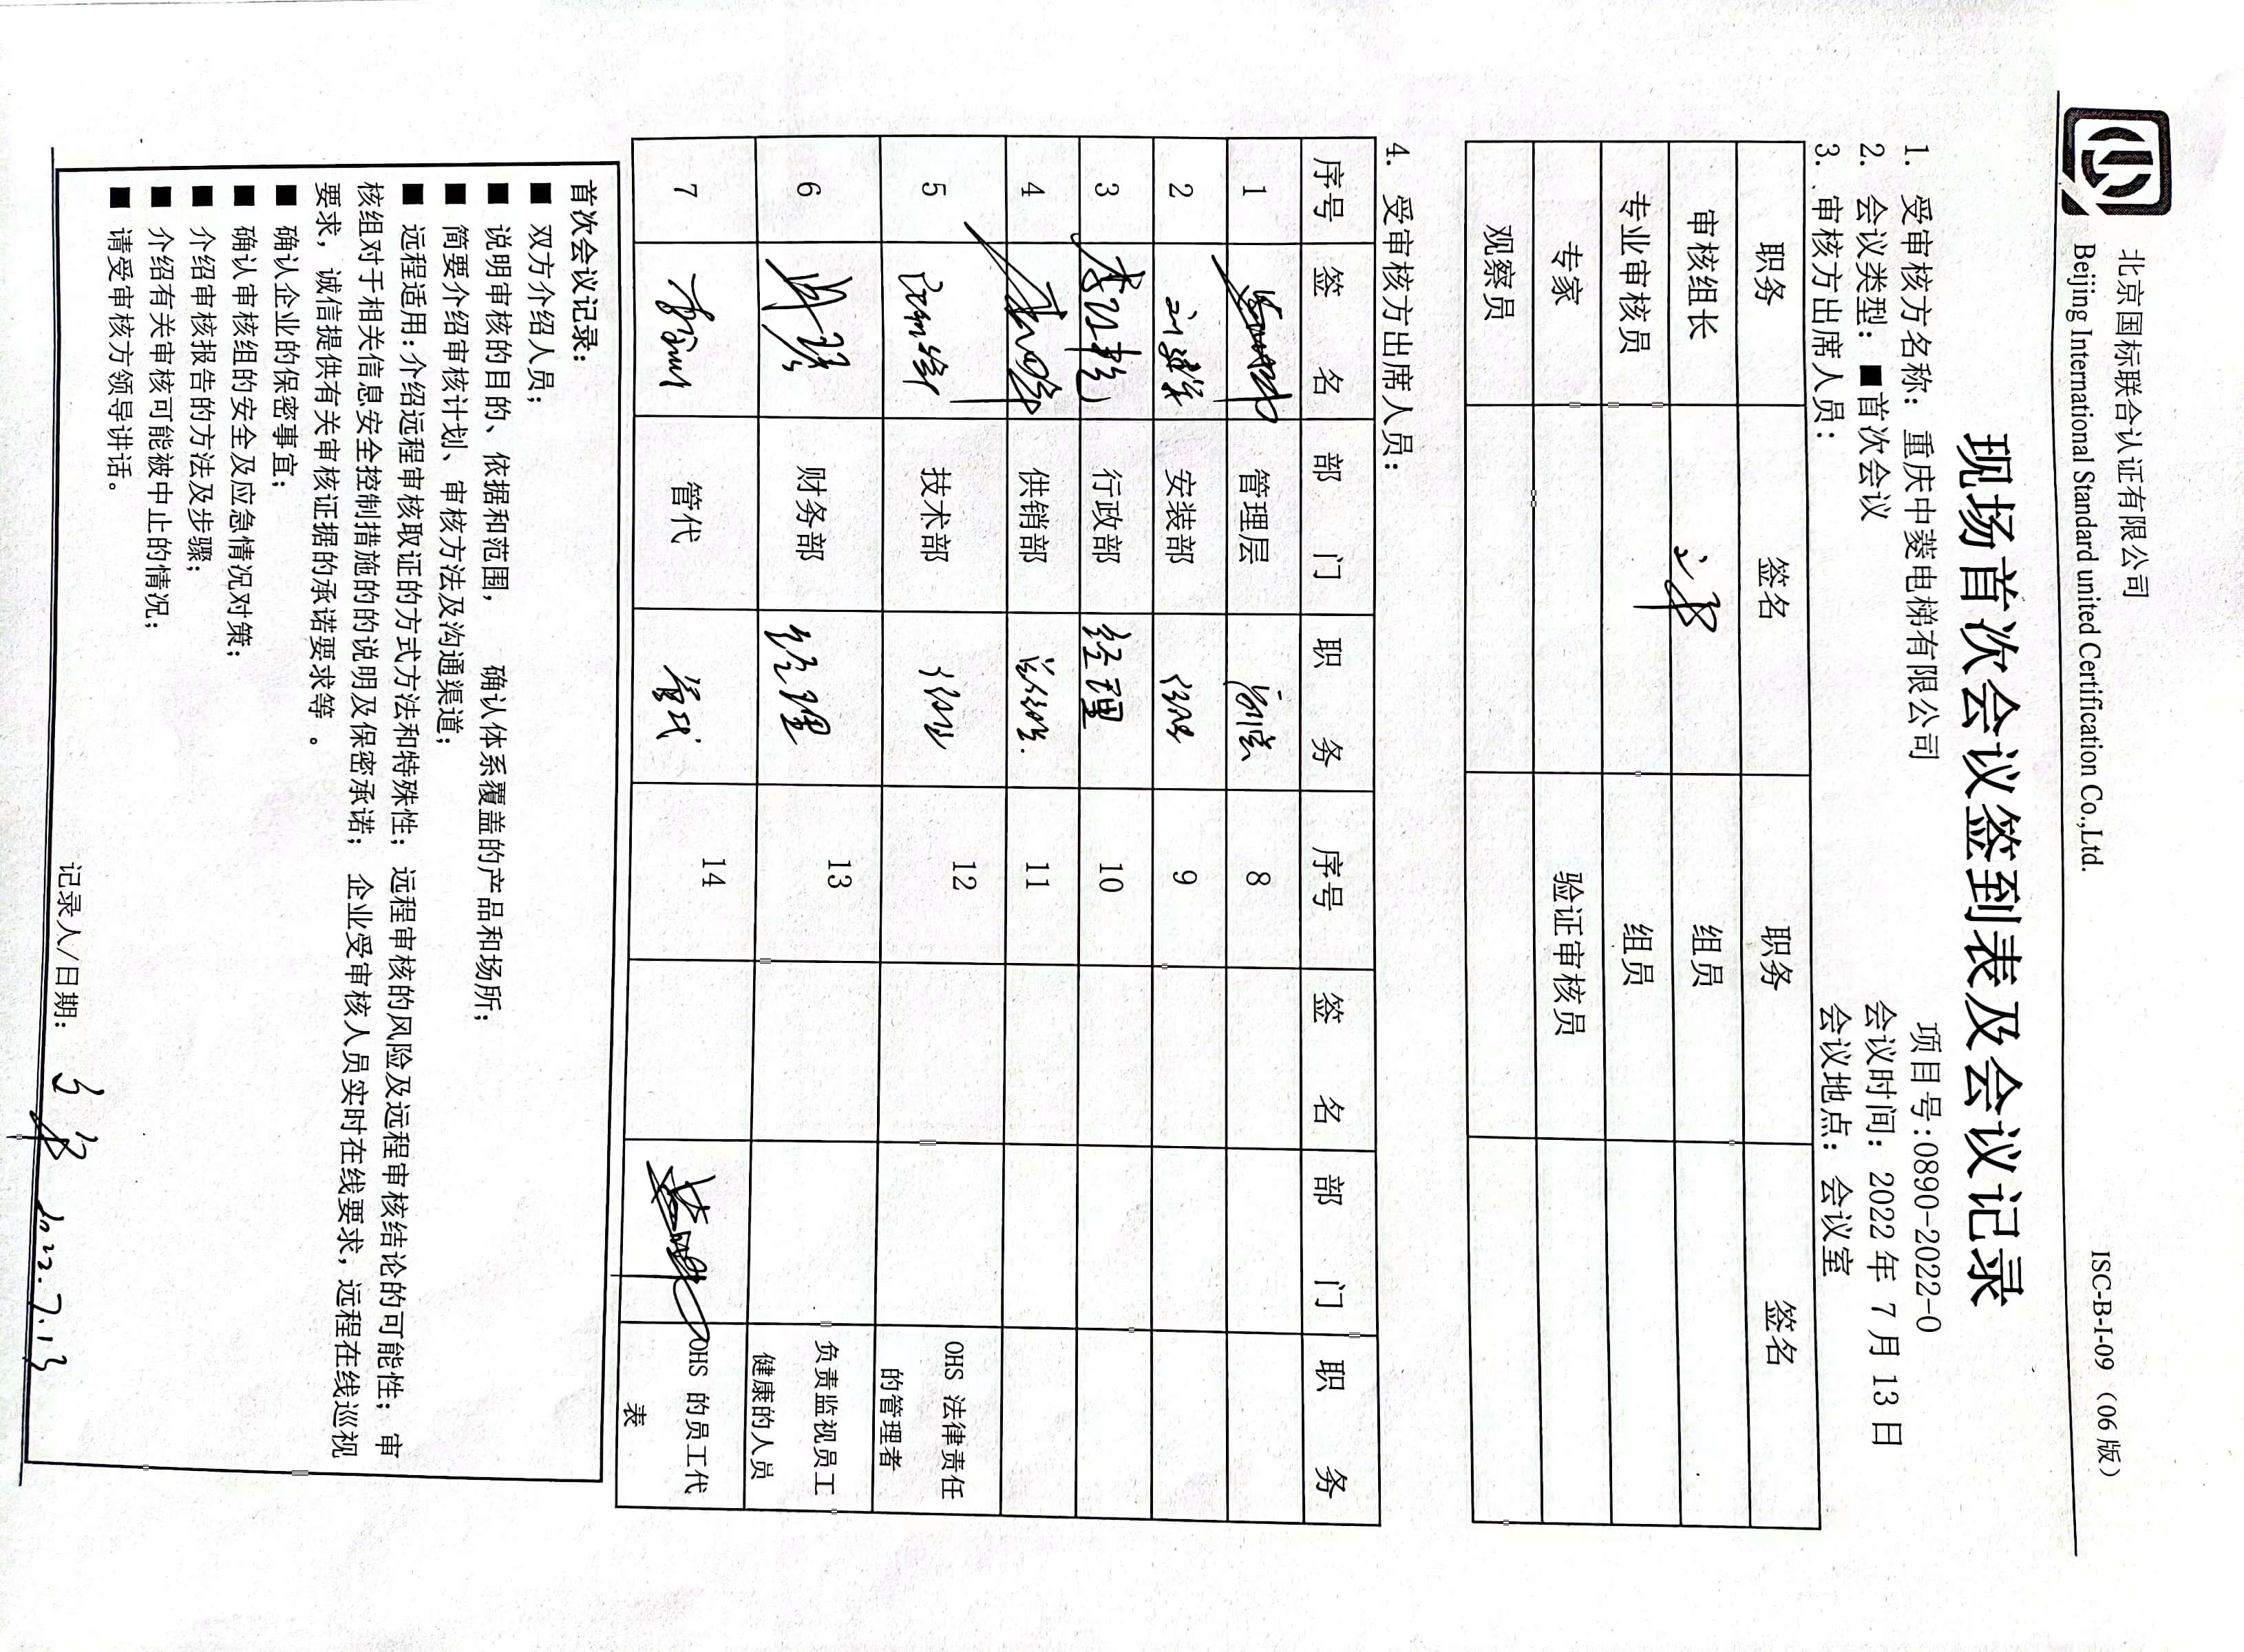 北京国标联合认证有限公司
Beijing International Standard united Certification Co.,Ltd. ISC-B-I-09（06 版）
现场首次会议签到表及会议记录
1. 受审核方名称：重庆中菱电梯有限公司 项目号:0890-2022-0
2. 会议类型：■首次会议 会议时间：2022 年 7 月 13 日
3. 审核方出席人员： 会议地点：会议室
职务 签名 职务 签名
审核组长 组员
专业审核员 组员
专家 验证审核员
观察员
4. 受审核方出席人员：
序号 签 名 部 门 职 务 序号 签 名 部 门 职 务
1 管理层 8
2 安装部 9
3 行政部 经理 10
4 供销部 11
5 技术部 12 OHS 法律责任
的管理者
6 财务部 经理 13 负责监视员工
健康的人员
7 管代 管代 14 OHS 的员工代
表
首次会议记录：
■ 双方介绍人员；
■ 说明审核的目的、依据和范围， 确认体系覆盖的产品和场所；
■ 简要介绍审核计划、审核方法及沟通渠道；
■ 远程适用：介绍远程审核取证的方式方法和特殊性； 远程审核的风险及远程审核结论的可能性； 审
核组对于相关信息安全控制措施的的说明及保密承诺； 企业受审核人员实时在线要求，远程在线巡视
要求，诚信提供有关审核证据的承诺要求等 。
■ 确认企业的保密事宜；
■ 确认审核组的安全及应急情况对策；
■ 介绍审核报告的方法及步骤；
■ 介绍有关审核可能被中止的情况；
■ 请受审核方领导讲话。
记录人/日期： 2022.7.13